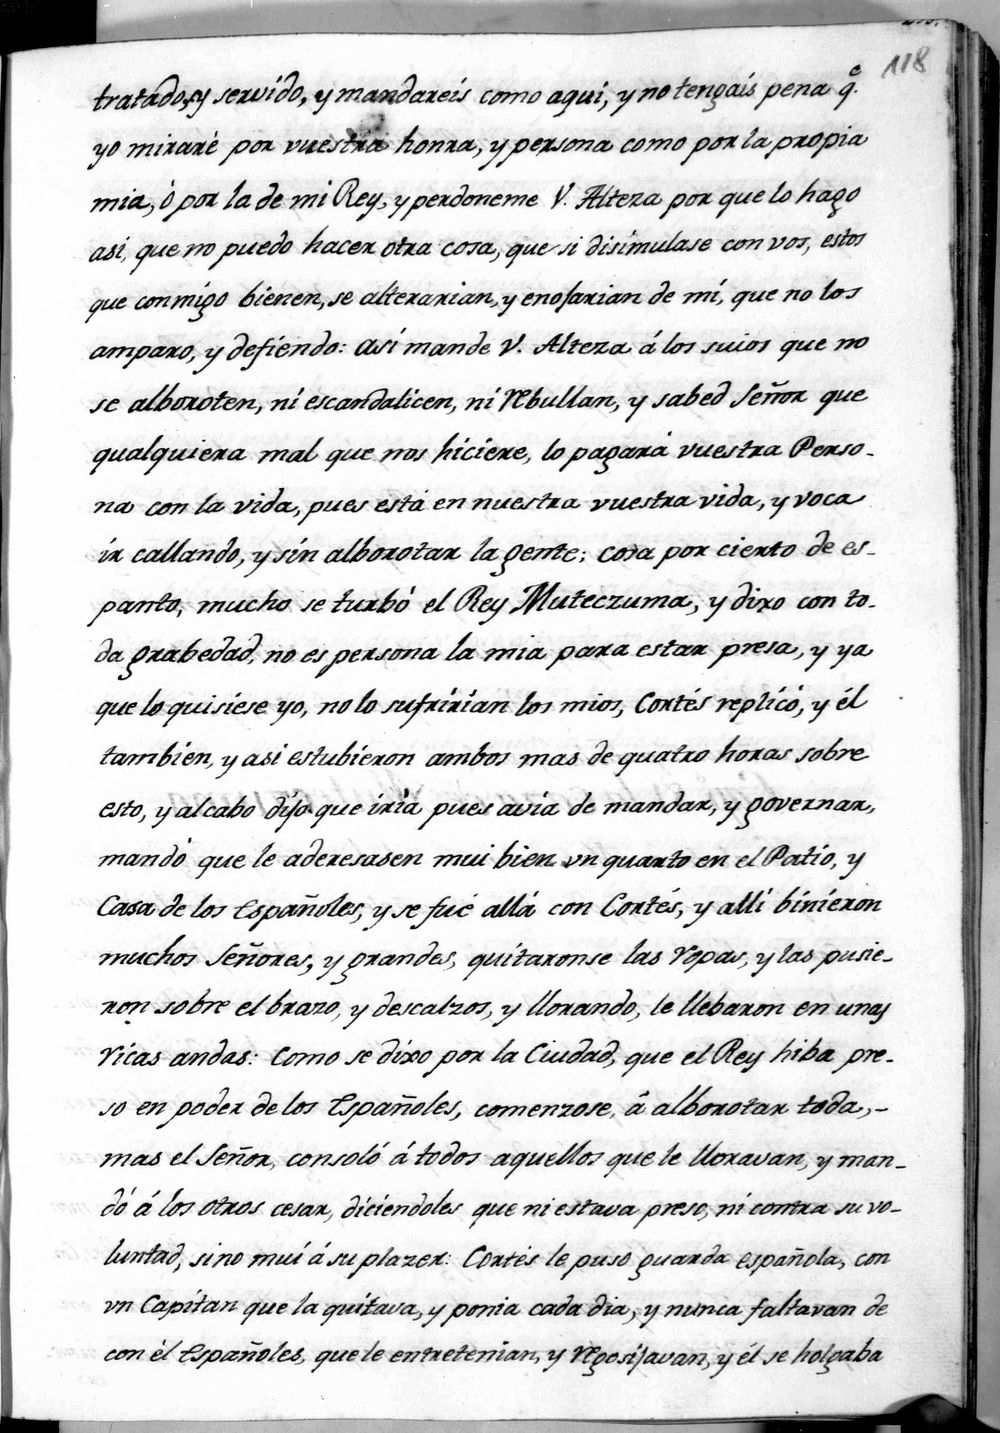 118
tratado, y servido, y mandareis como aqui, y no tengais pena q.e
yo miraré por vuestra honra, y persona como por la propia
mia, ò por la de mi Rey, y perdoneme V. Alteza por que lo hago
asi, que no puedo hacer otra cosa, que si disimulase con vos, estos
que conmigo bienen, se alterarian, y enojarian de mi, que no los
amparo, y defiendo: asi mande V. Alteza á los suios que no
se alboroten, ni escandalicen, ni rebullan, y sabed Señor que
qualquiera mal que nos hiciere, lo pagará vuestra Perso-
na con la vida, pues está en nuestra vuestra vida, y voca
ir callando, y sin alborotar la gente; cosa por cierto de es-
panto, mucho se turbó el Rey Muteczuma, y dixo con to-
da grabedad, no es persona la mia para estar presa, y ya
que lo quisiese yo, no lo sufririan los mios, Cortés replicó, y él
tambien, y asi estubieron ambos mas de quatro horas sobre
esto, y al cabo dijo que iria pues avia de mandar, y governar,
mandó que le aderesasen mui bien vn quarto en el Patio, y
Casa de los Españoles, y se fué allá con Cortés, y alli binieron
muchos Señores, y grandes, quitaronse las ropas, y las pusie-
ron sobre el brazo, y descalzos, y llorando, le llebaron en unas
ricas andas: Como se dixo por la Ciudad, que el Rey hiba pre-
so en poder de los Españoles, comenzose, á alborotar toda,-
mas el Señor, consoló á todos aquellos que le lloravan, y man-
dó á los otros cesar, diciendoles que ni estava preso, ni contra su vo-
luntad, sino mui á su plazer: Cortés le puso guarda española, con
vn Capitan que la quitava, y ponia cada dia, y nunca faltavan de
con él Españoles, que le entretenian, y regosijavan, y él se holgaba